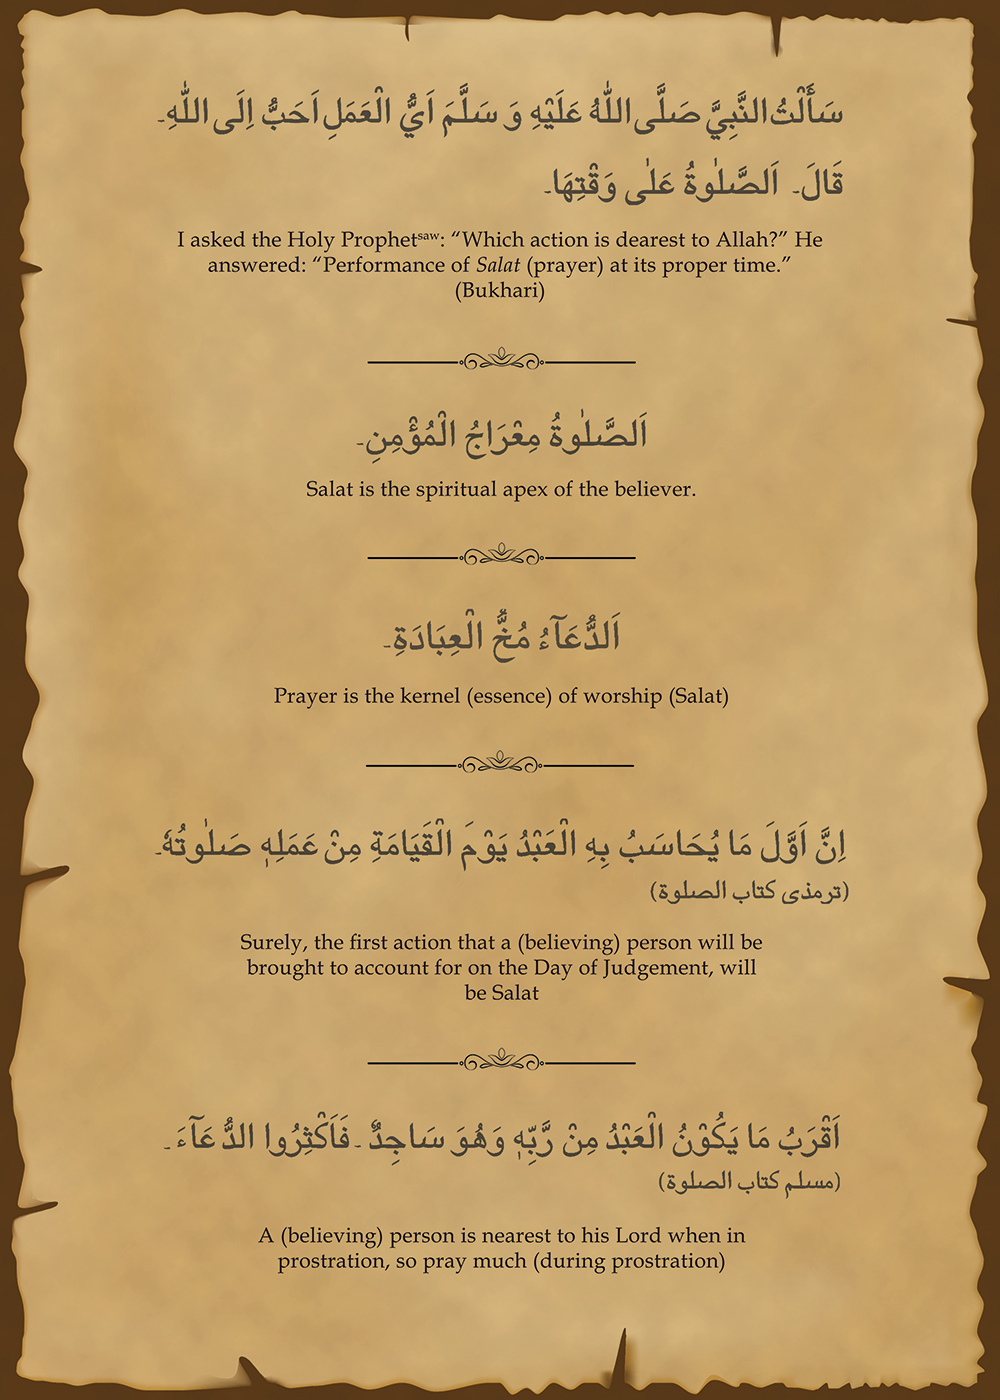 سَأَلْتُ النَّبِيَّ صَلَّى اللّٰهُ عَلَيْهِ وَ سَلَّمَ اَيُّ الْعَمَلِ اَحَبُّ اِلَى اللّٰهِ۔
قَالَ۔ اَلصَّلٰوةُ عَلٰى وَقْتِهَا۔
I asked the Holy Prophetsaw: “Which action is dearest to Allah?” He
answered: “Performance of Salat (prayer) at its proper time.”
(Bukhari)
اَلصَّلٰوةُ مِعْرَاجُ الْمُؤْمِنِ۔
Salat is the spiritual apex of the believer.
اَلدُّعَآءُ مُخُّ الْعِبَادَةِ۔
Prayer is the kernel (essence) of worship (Salat)
اِنَّ اَوَّلَ مَا يُحَاسَبُ بِهِ الْعَبْدُ يَوْمَ الْقَيَامَةِ مِنْ عَمَلِهٖ صَلٰوتُهٗ۔
(ترمذی کتاب الصلوة)
Surely, the first action that a (believing) person will be
brought to account for on the Day of Judgement, will
be Salat
اَقْرَبُ مَا يَكُوْنُ الْعَبْدُ مِنْ رَّبِّهٖ وَهُوَ سَاجِدٌ۔فَاَكْثِرُوا الدُّعَآءَ۔
(مسلم کتاب الصلوة)
A (believing) person is nearest to his Lord when in
prostration, so pray much (during prostration)